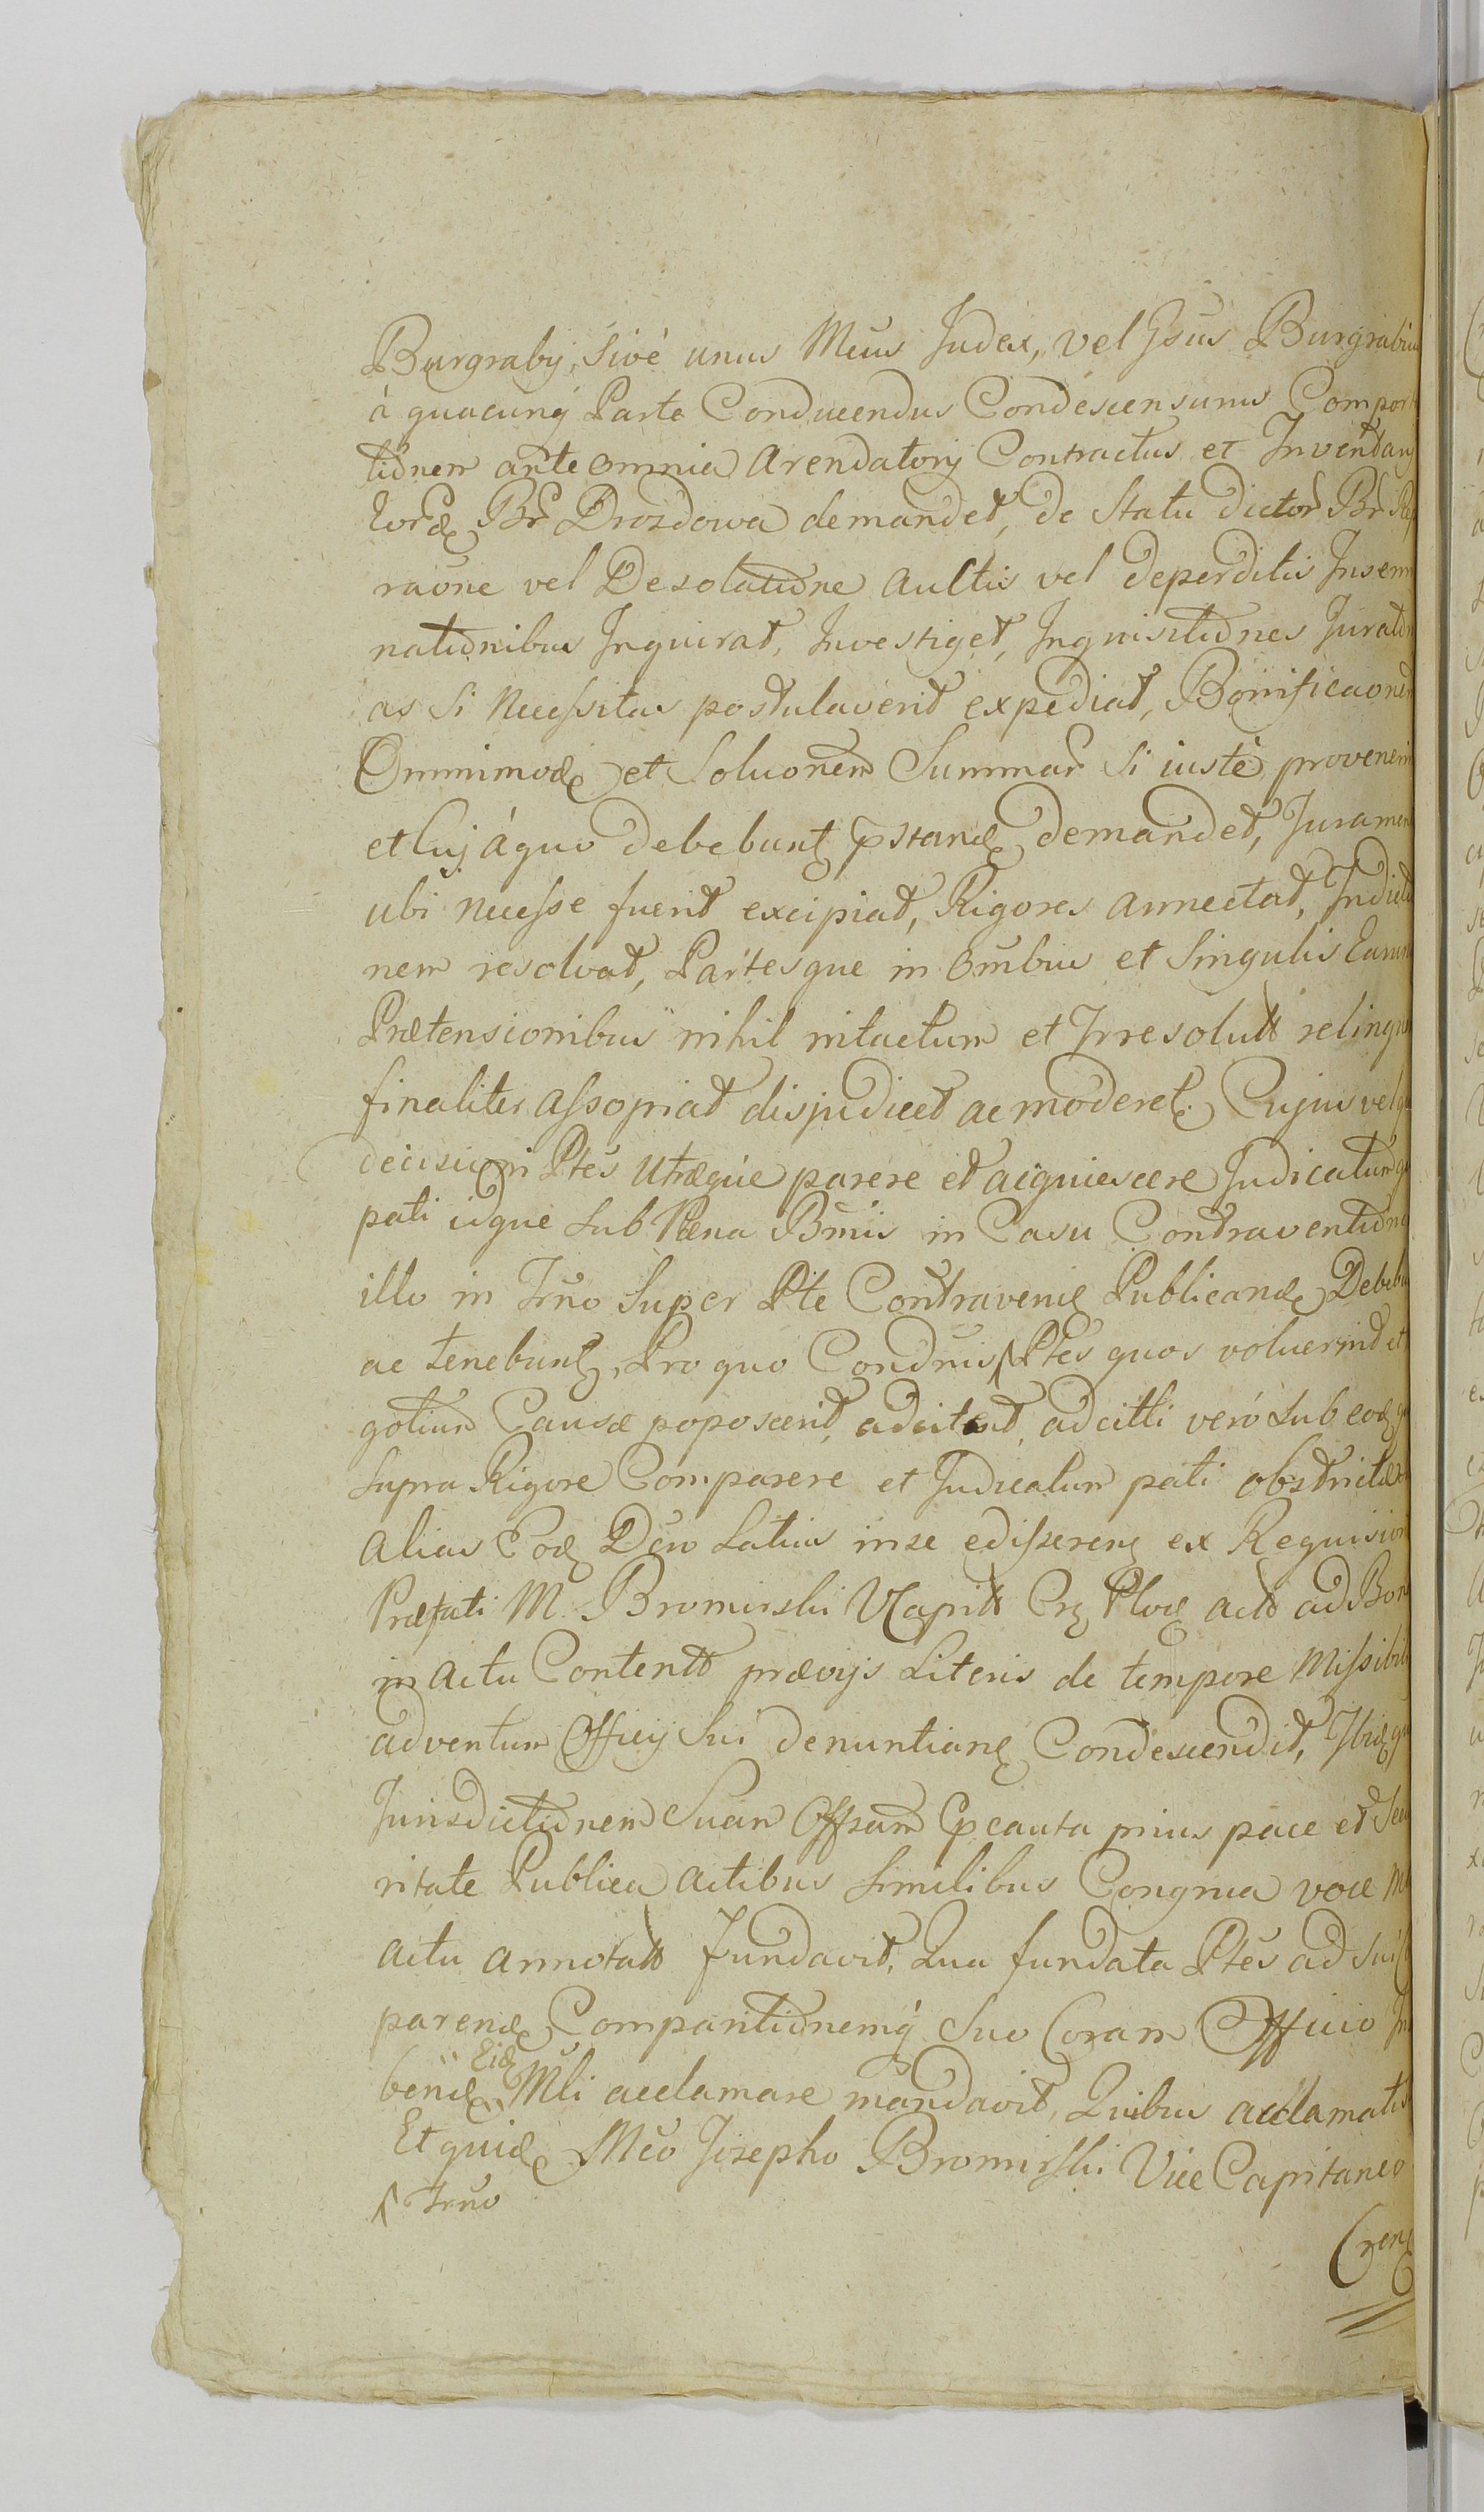 Burgraby, Sivé unus Meus Judex, vel Jsius Burgrabius
à quacunq Parte Conducendus Condescensurus Compor
tiōnem ante omnia Arendatorij Contractus et Inventarij
Eorđ Br Drozdowa demandet, de Statu dictor Br Rep
raōne vel Desolatiōne auctis vel deperditis Insemi
natiōnibus Inquirat, Investiget, Inquisitiōnes Jurat
as si necessitas postulaverit expediat, Bonificaonem
Omnimođ et Soluonem Summar si iustè provenerint
et Cuj áquo debebunt pstanđ demandet, Juramen
ubi necesse fuerit excipiat, Rigores annectat, Indict
nem resolvat, Partesque in Omibus et Singulis Earum
Prætensionibus nihil intactum et Irresolutt relinqu
finaliter assopiat disjudicet ac moderet. Cujus vel
decisioni Ptes Utræque parere et acquiescere Judicatumq
pati idque sub Pæna Bmis in Casu Contraventiōnis
illo in Trno Super Pte Contravenien Publicanđ Debebu
ac tenebunt, Pro quo Condnis Ptes quos voluerint et
gotium Causæ poposcerit, adcitent, adcitti veró Sub eođ
Supra Rigore Comparere et Judicatum pati obstricti
alias Eođ Dcto Latius in se edisseren ex Requision
Præfati M. Bromirski VCapitt Crz Ploc actt ad Bon
in actu Contentt prævijs Literis de tempore Missibili
adventum Officij Sui denuntian Condescendit, Ibiđq
Jurisdictiōnem Suam Offsam Cpcauta prius pace et Secu
ritate Publica actibus similibus Congrua voce M
actu annotatt fundavit, Qua fundata Ptes ad sui
parenđ Comparitiōnemq Suo Coram Officio In
benđ Eiđ Mli acclamare mandavit, Quibus acclamatis
Et quiđ Mco Josepho Bromirski Vice Capitaneo
Trno
Cren